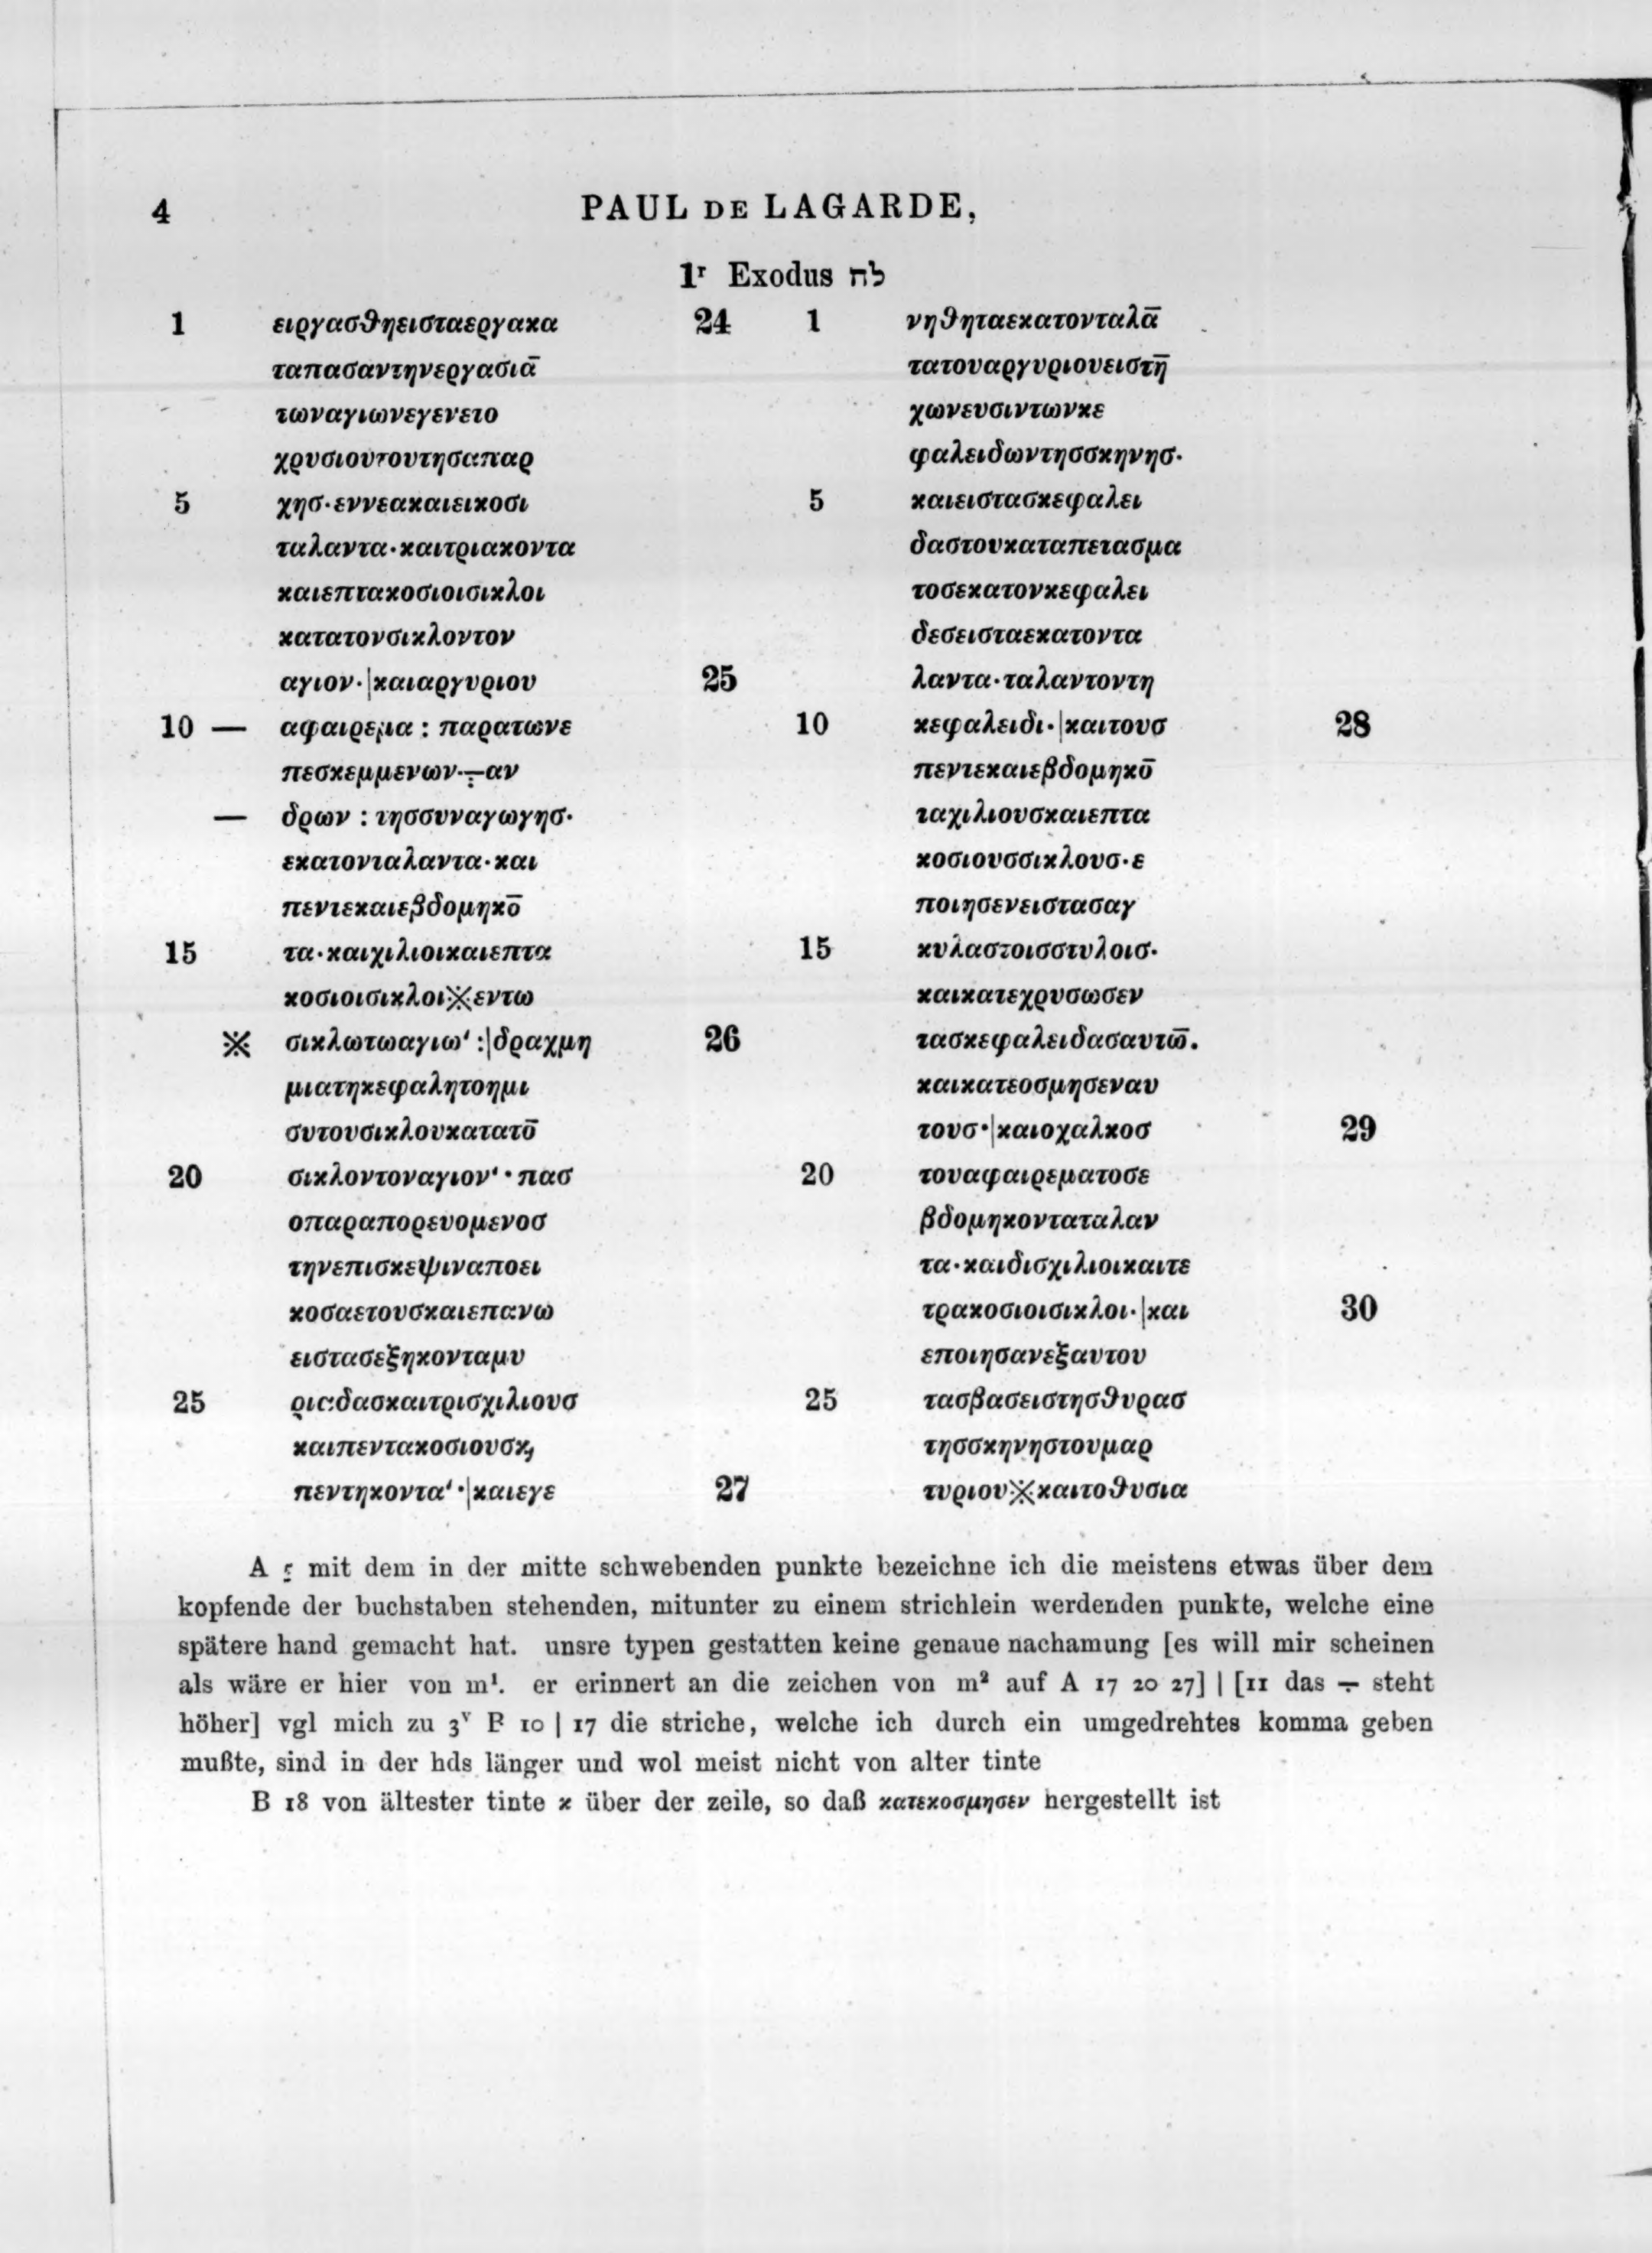 4
PAUL DE LAGARDE,
1ʳ Exodus לח
1 ειργασθηεισταεργακα 24
ταπασαντηνεργασια̅
τωναγιωνεγενετο
χρυσιουτουτησαπαρ
5 χησ·εννεακαιεικοσι
ταλαντα·καιτριακοντα
καιεπτακοσιοισικλοι
κατατονσικλοντον
αγιον·|καιαργυριου 25
10 — αφαιρεμα : παρατωνε
πεσκεμμενων·⨪αν
— δρων : τησσυναγωγησ·
εκατονταλαντα·και
πεντεκαιεβδομηκο̅
15 τα·καιχιλιοικαιεπτα
κοσιοισικλοι※εντω
※ σικλωτωαγιωʻ :|δραχμη 26
μιατηκεφαλητοημι
συτουσικλουκατατο̅
20 σικλοντοναγιονʻ·πασ
οπαραπορευομενοσ
τηνεπισκεψιναποει
κοσαετουσκαιεπανω
ειστασεξηκονταμυ
25 ριαδασκαιτρισχιλιουσ
καιπεντακοσιουσϗ
πεντηκονταʻ·|καιεγε 27
1 νηθηταεκατονταλα̅
τατουαργυριουειστη̅
χωνευσιντωνκε
φαλειδωντησσκηνησ·
5 καιειστασκεφαλει
δαστουκαταπετασμα
τοσεκατονκεφαλει
δεσεισταεκατοντα
λαντα·ταλαντοντη
10 κεφαλειδι·|καιτουσ 28
πεντεκαιεβδομηκο̅
ταχιλιουσκαιεπτα
κοσιουσσικλουσ·ε
ποιησενειστασαγ
15 κυλαστοισστυλοισ·
καικατεχρυσωσεν
τασκεφαλειδασαυτω̅.
καικατεοσμησεναυ
τουσ·|καιοχαλκοσ 29
20 τουαφαιρεματοσε
βδομηκονταταλαν
τα·καιδισχιλιοικαιτε
τρακοσιοισικλοι·|και 30
εποιησανεξαυτου
25 τασβασειστησθυρασ
τησσκηνηστουμαρ
τυριου※καιτοθυσια
A 5 mit dem in der mitte schwebenden punkte bezeichne ich die meistens etwas über dem
kopfende der buchstaben stehenden, mitunter zu einem strichlein werdenden punkte, welche eine
spätere hand gemacht hat. unsre typen gestatten keine genaue nachamung [es will mir scheinen
als wäre er hier von m¹. er erinnert an die zeichen von m² auf A 17 20 27] | [11 das ⨪ steht
höher] vgl mich zu 3ᵛ B 10 | 17 die striche, welche ich durch ein umgedrehtes komma geben
mußte, sind in der hds länger und wol meist nicht von alter tinte
B 18 von ältester tinte κ über der zeile, so daß κατεκοσμησεν hergestellt ist